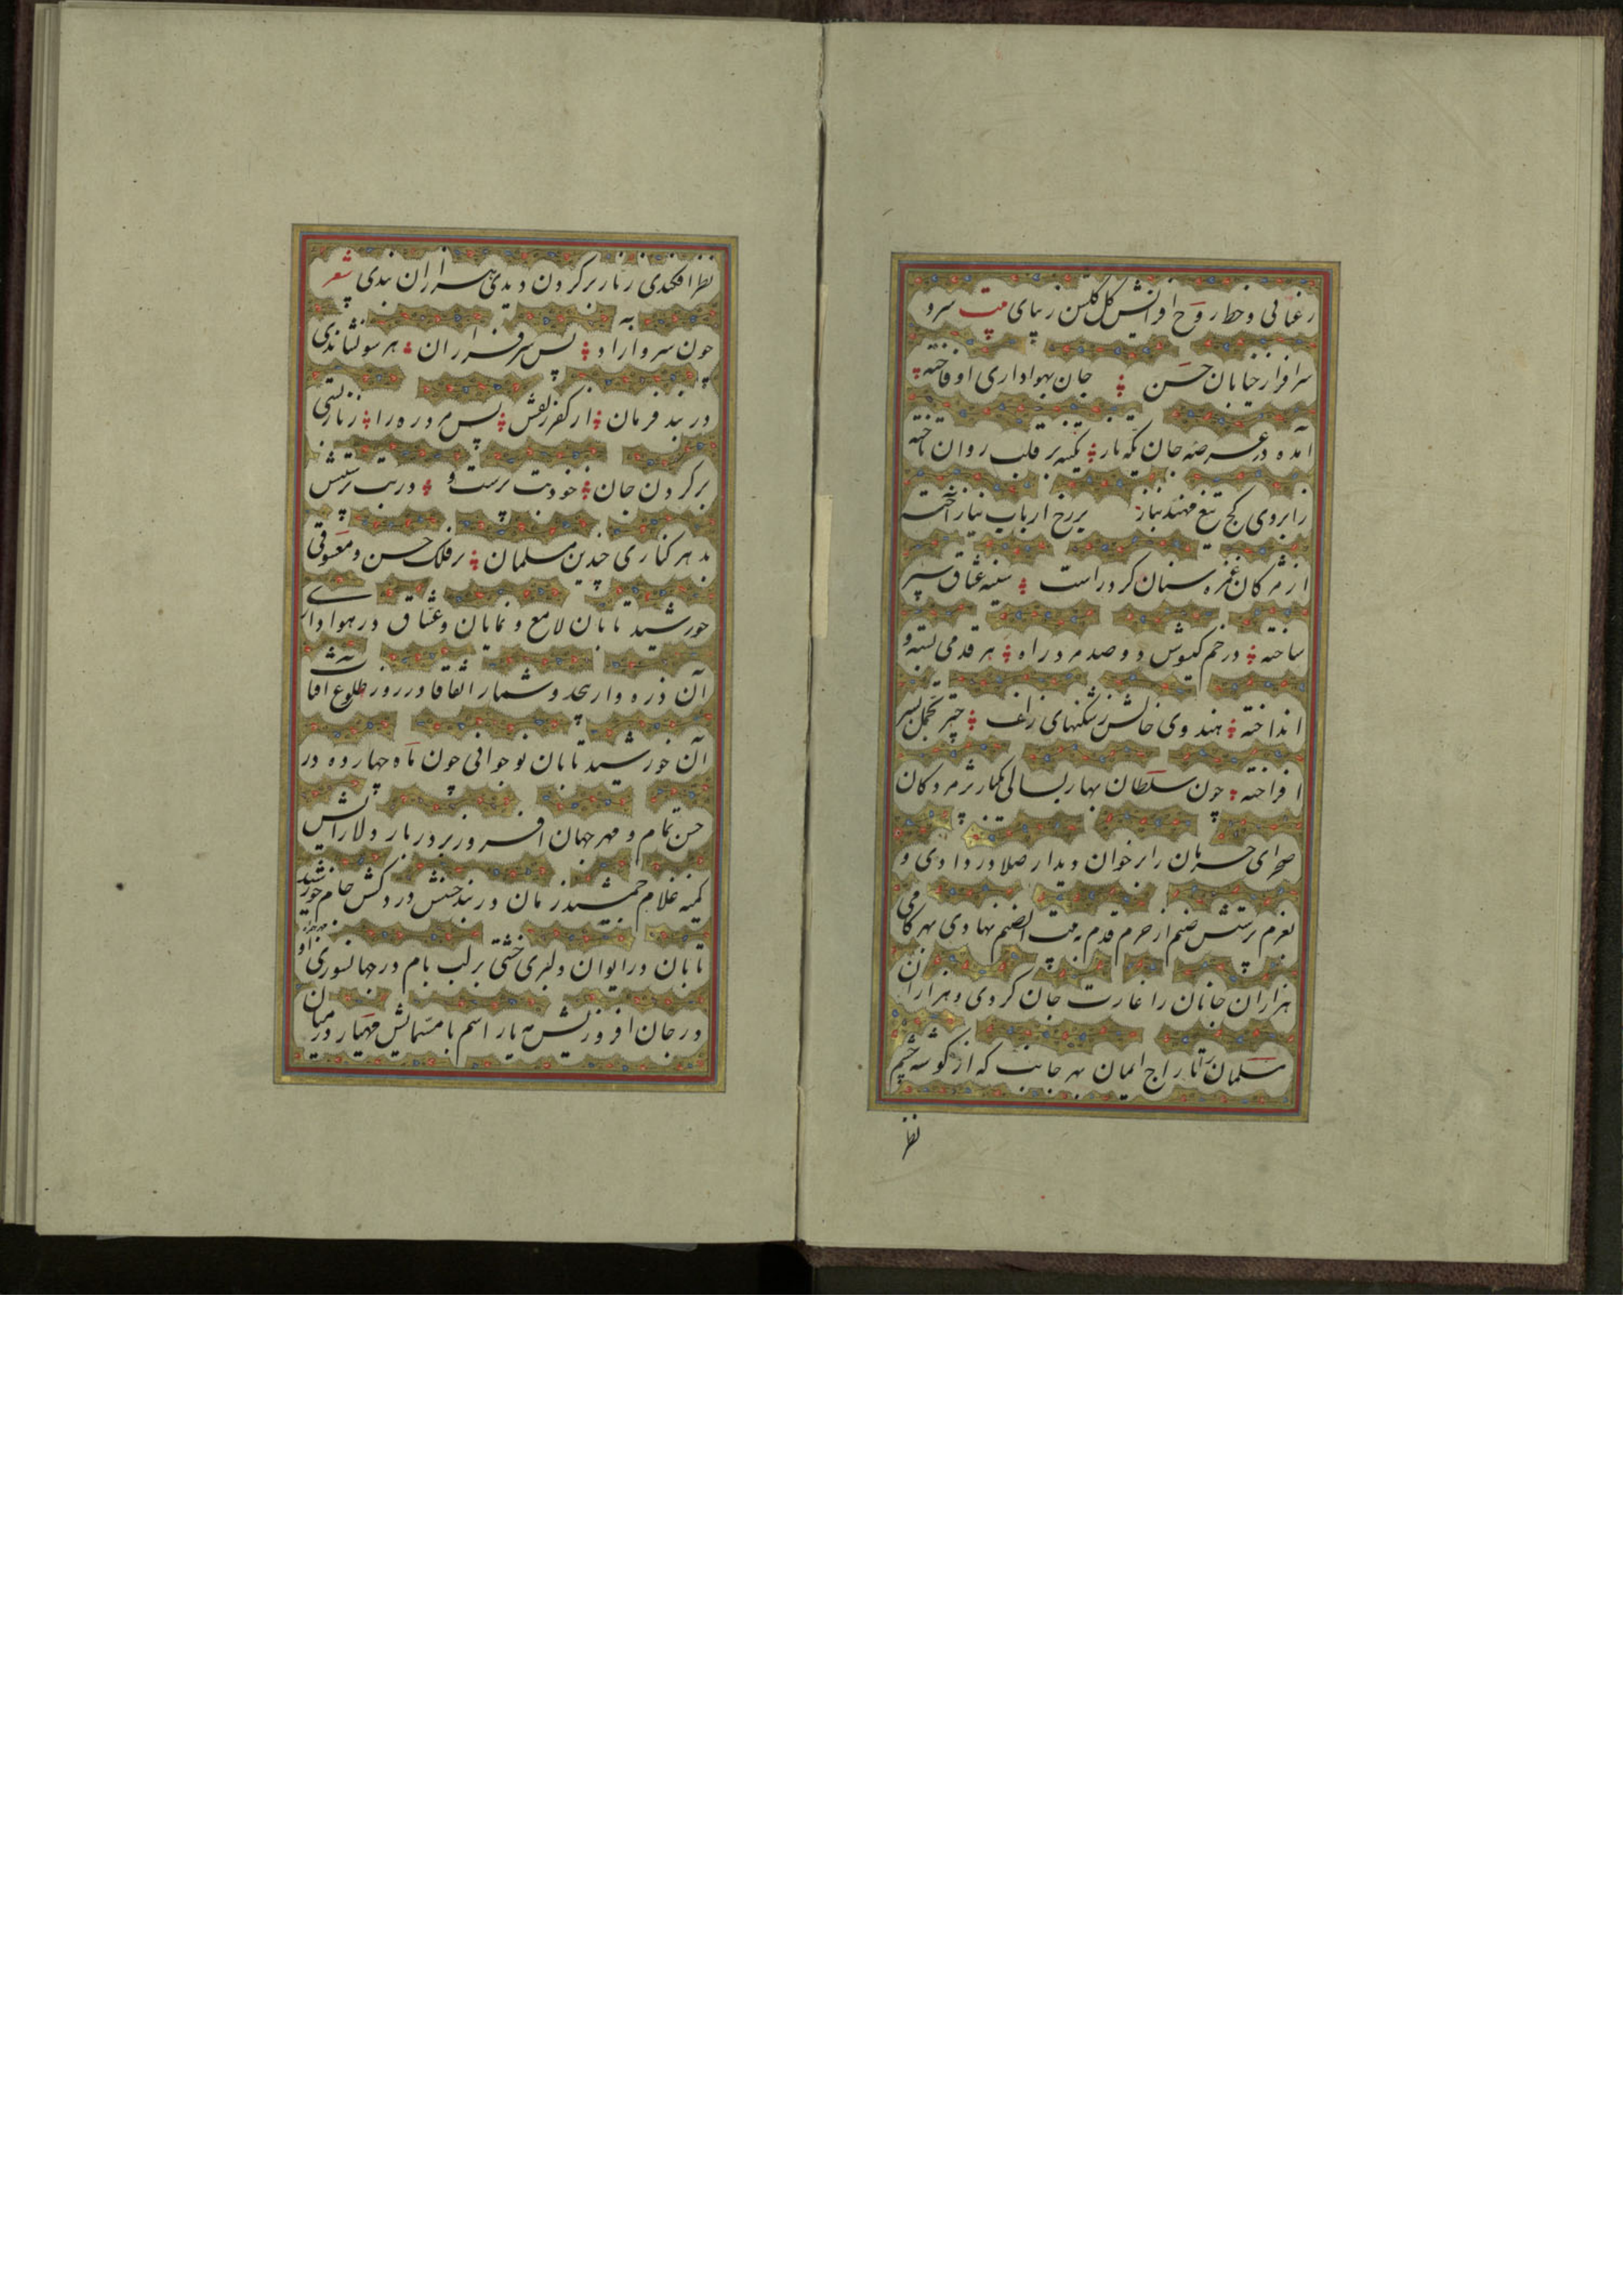 رعنائی و خط روح افزایش گل گلشن زیبای بیت سرو
سرافراز خیابان حسن جان بهواداری او فاخته
آمده در عرصه جان یکه تاز یکسه بر قلب روان تاخته
ز ابروی کج تیغ مهند بناز بر رخ ارباب نیاز آخته
از مژگان غمزه سنان کرد و راست سینه عشاق سپر
ساخته در خم گیسوش دو صد مرد راه هر قدمی بسته و
انداخته هندوی خالش ز شکنهای زلف چتر تجمل بسر
افراخته چون سلطان بهار بسالی یکبار پژمردگان
صحرای حرمان را بر خوان دیدار صلا در دادی و
بعزم پرستش صنم از حرم قدم به بیت الصنم نهادی بهر گامی
هزاران جانان را غارت جان کردی و هزاران
مسلمان را تاراج ایمان بهر جانب که از گوشه چشم
نظر
نظر افکندی زنار بر گردن دیدی هزاران بندی شعر
چون سرو آزاد بس سرفرازان بهر سو نشاندی
در بند فرمان از کفر زلفش بس مرد ره را زنار بستی
بر گردن جان خود بت پرست و در بت پرستیش
بد هر کناری چندین مسلمان بر فلک حسن و معشوقی
خورشید تابان لامع و نمایان و عشاق در هواداری
آن ذره وار بیحد و شمار اتفاقا در روز طلوع آفتاب
آن خورشید تابان نوجوانی چون ماه چهارده در
حسن تمام و مهر جهان افروز بر در بار دلارائیش
کمینه غلام جمشید زمان در بند حسنش دردکش جام خورشید
تابان در ایوان دلبری خشتی بر لب بام در جهانسوزی او
در جان افروزیش مه یار اسم با مسمایش مهیار در میان